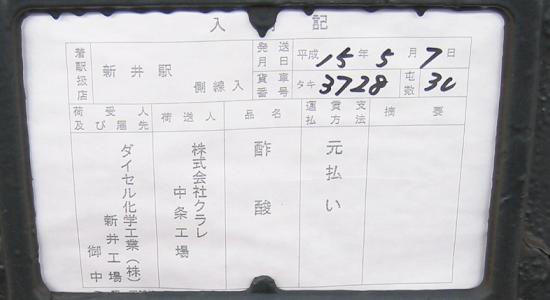 入 記
着駅扱店
新井駅
側線入
発送月日
平成15年5月7日
貨車番号
タキ 3728
屯数
30
荷受人及び届先
荷送人
品名
運賃支払方法
摘要
ダイセル化学工業(株)
新井工場
御中
株式会社クラレ
中条工場
酢酸
元払い